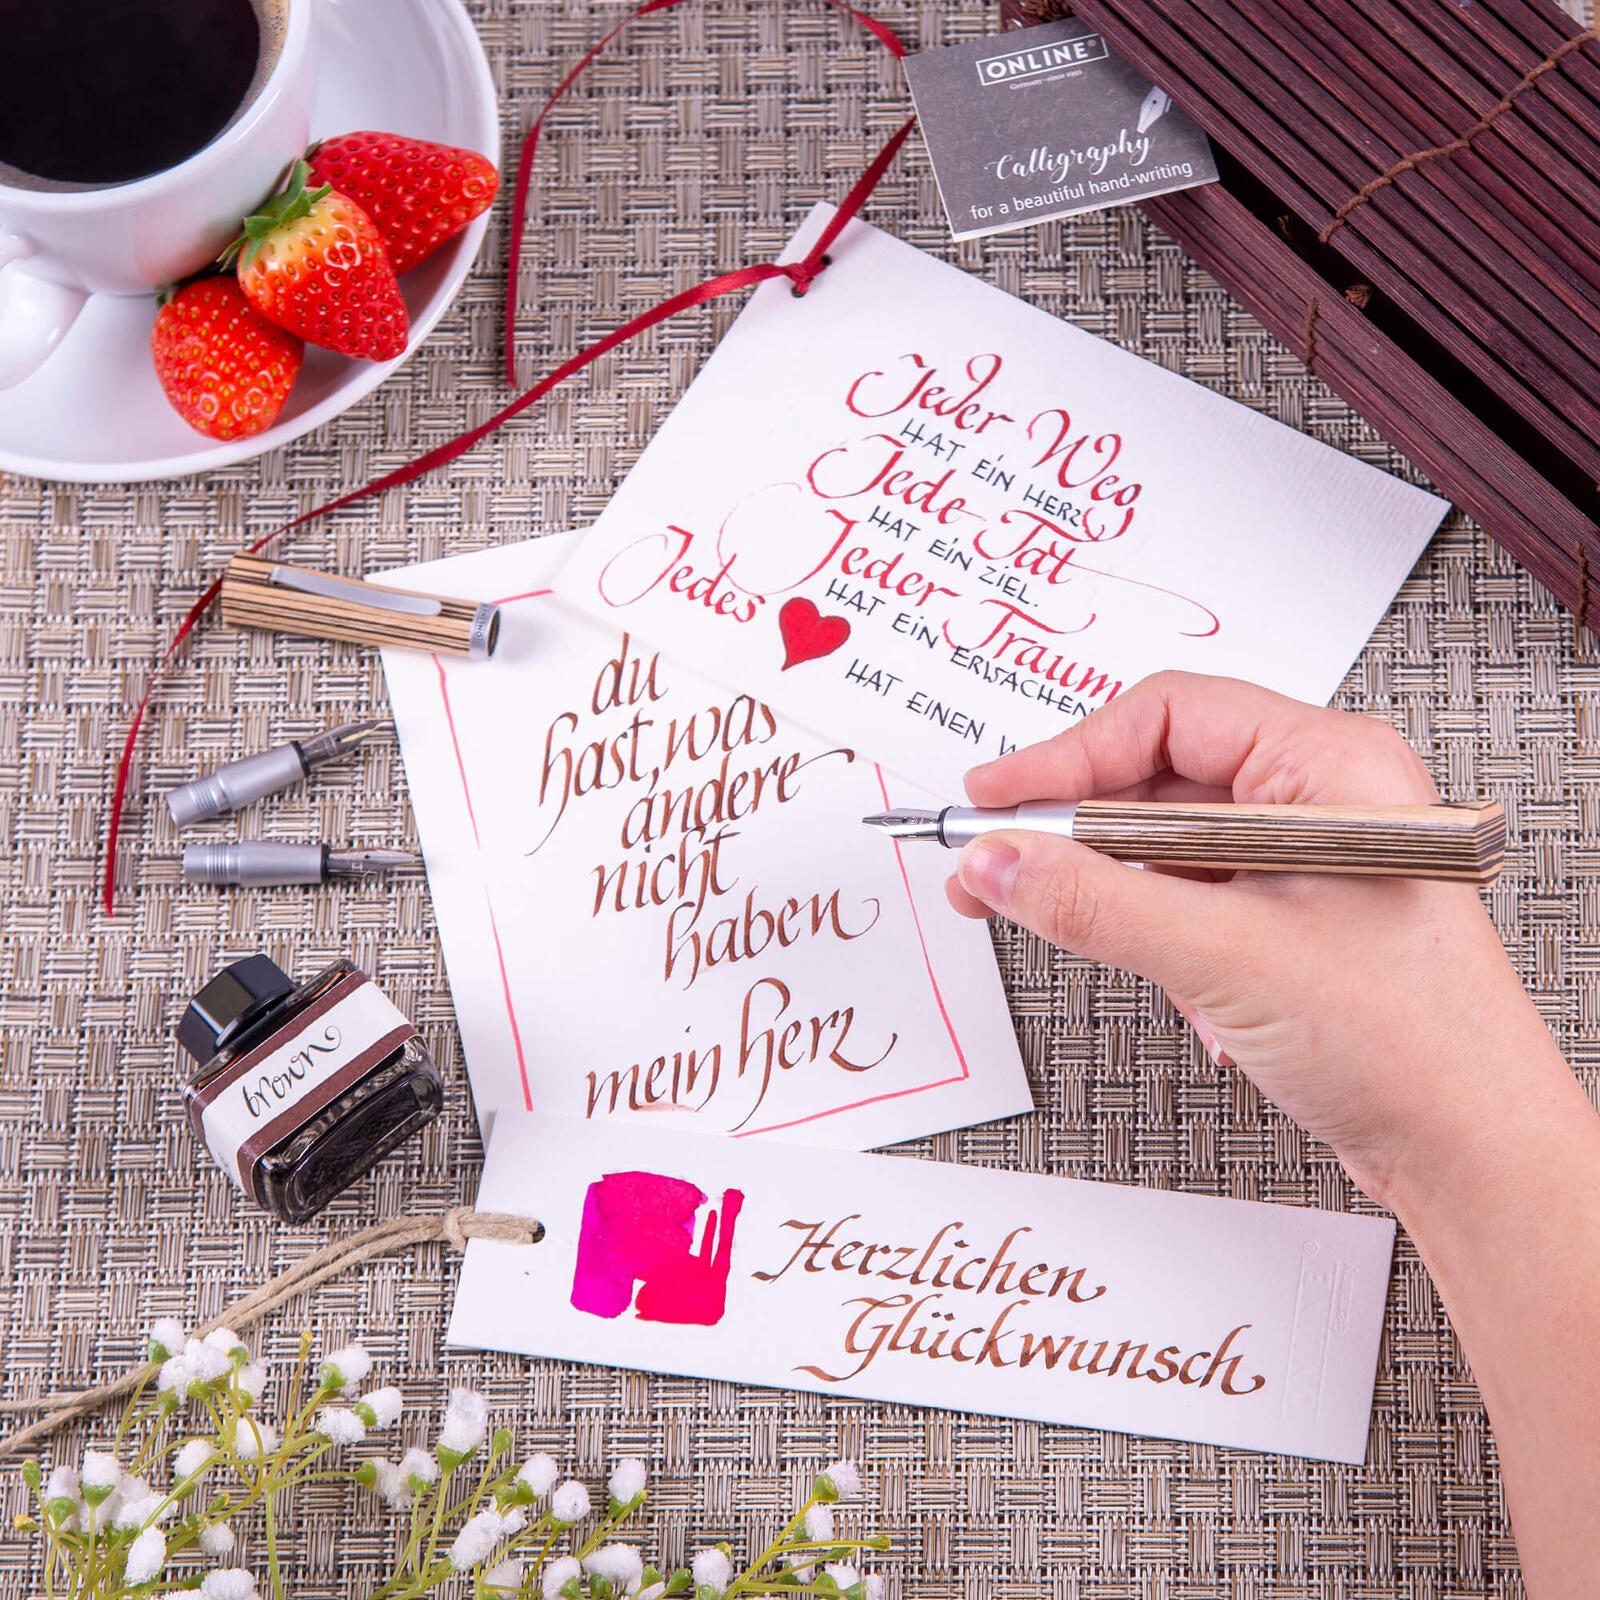 ONLINE®
Germany · since 1991
Calligraphy
for a beautiful hand-writing
Jeder Weg
HAT EIN HERZ
Jede Tat
HAT EIN ZIEL.
Jeder Traum
HAT EIN ERWACHEN
Jedes
HAT EINEN
du
hast, was
andere
nicht
haben
mein herz
brown
Herzlichen
Glückwunsch